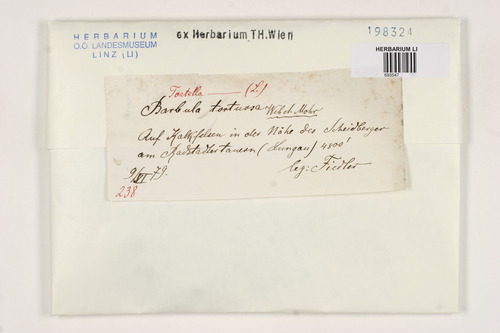 HERBARIUM
O.Ö. LANDESMUSEUM
LINZ (LI)
ex Herbarium TH.Wien
198324
HERBARIUM LI
693547
Tortella —— (L.)
Barbula tortuosa Web. et. Mohr
Auf Kalkfelsen in der Nähe des Scheidberges
am Radstadtertauern (Lungau) 4800'
9/VII 79.
leg: Fiedler
238